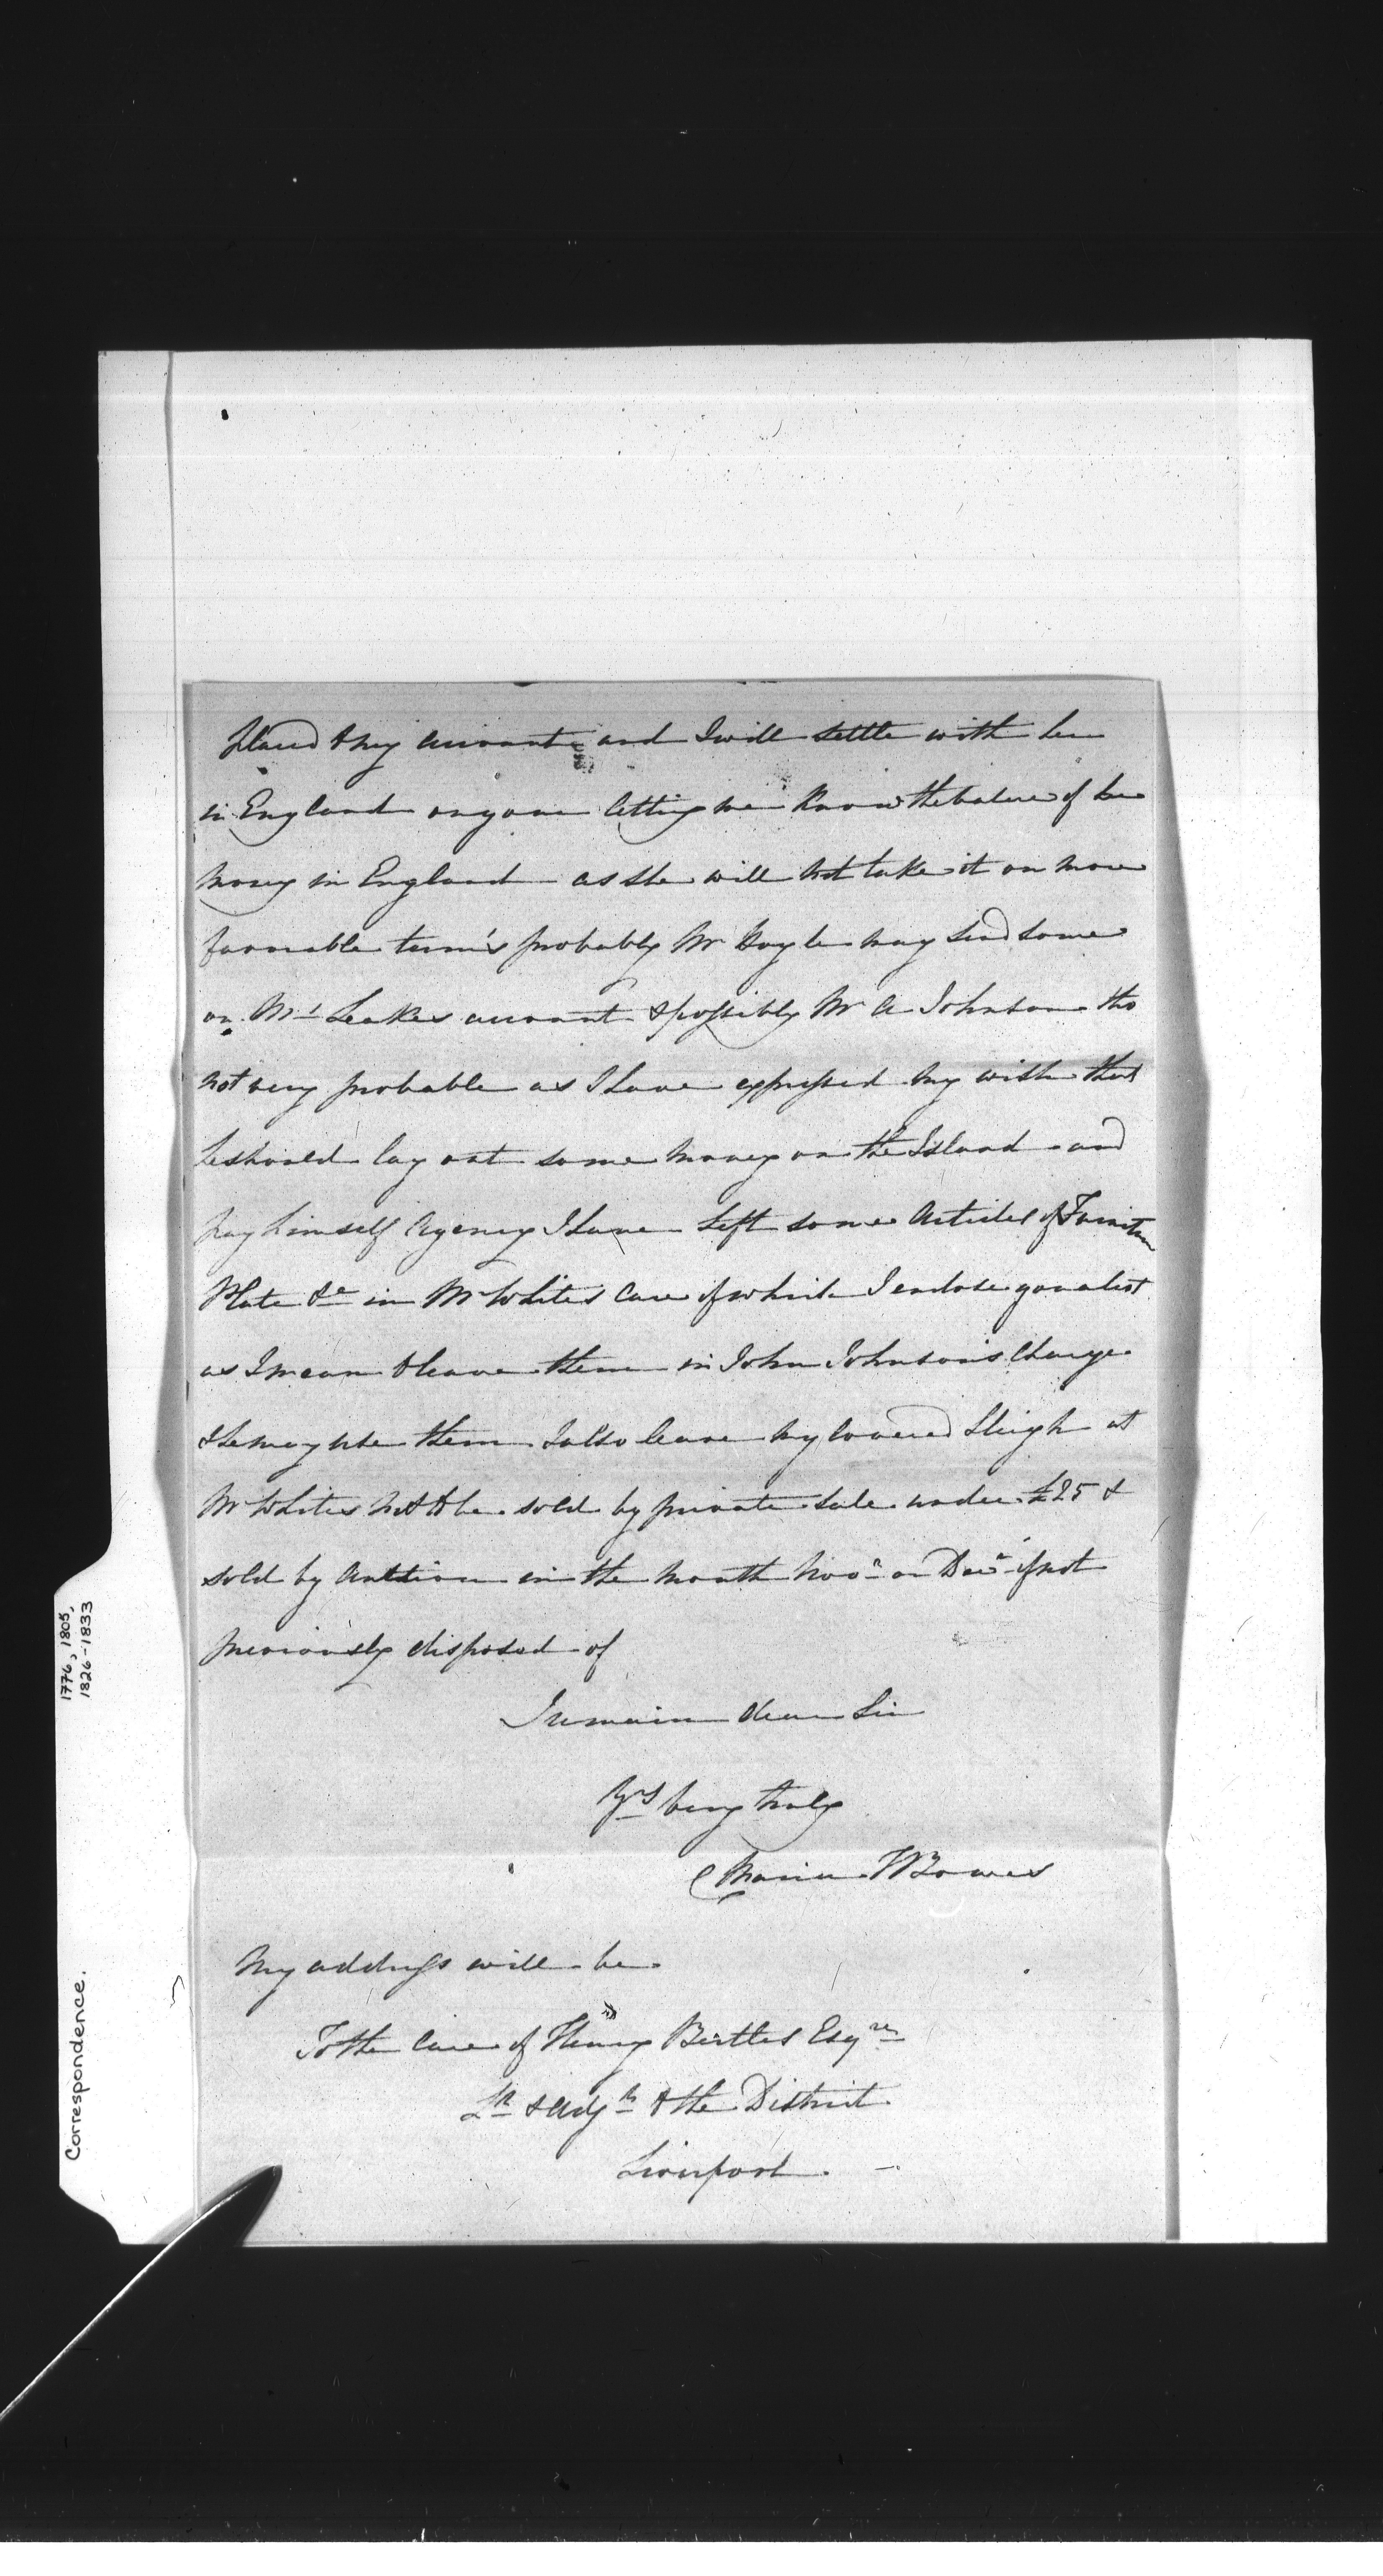 placed to my account and I will settle with her
in England on your letting me know the balance of her
money in England - as she will not take it on more
favorable term's probably Mr Hoyle may send some
on Mrs Leakes account & possibly Mr A Johnson tho
not very probable as I have expressed my wish that
he should lay out some money on the Island - and
pay himself Agency I have left some Articles of Furniture
Plate &c in Mr Whites Care of which I enclose you a list
as I mean to leave them in John Johnson's Charge
& he may use them I also leave my covered Sleigh at
Mr Whites not to be sold by private sale under £25 &
sold by Auction in the month Novr or Decr if not
previously disposed of
I remain dear Sir
Yrs very truly
Maria W Bowes
My address will be
To the Care of Henry Bertles Esqre
Lt & Adjt to the District
Liverpool. -
1776, 1805,
1826-1833
Correspondence.